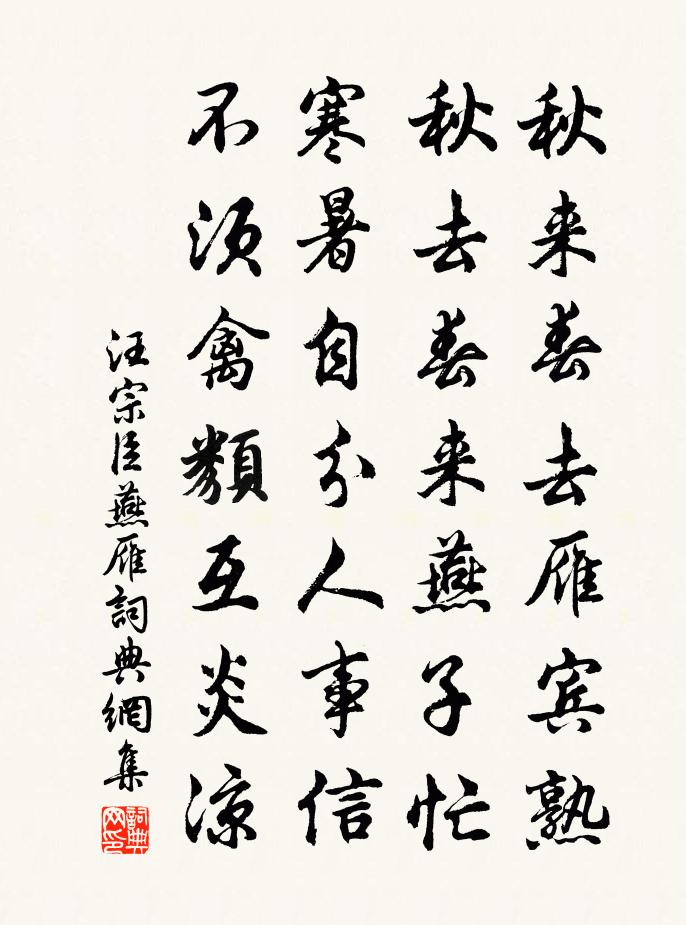 秋来春去雁宾熟
秋去春来燕子忙
寒暑自分人事信
不须禽類互炎凉
汪宗臣燕雁詞典網集
詞典网印